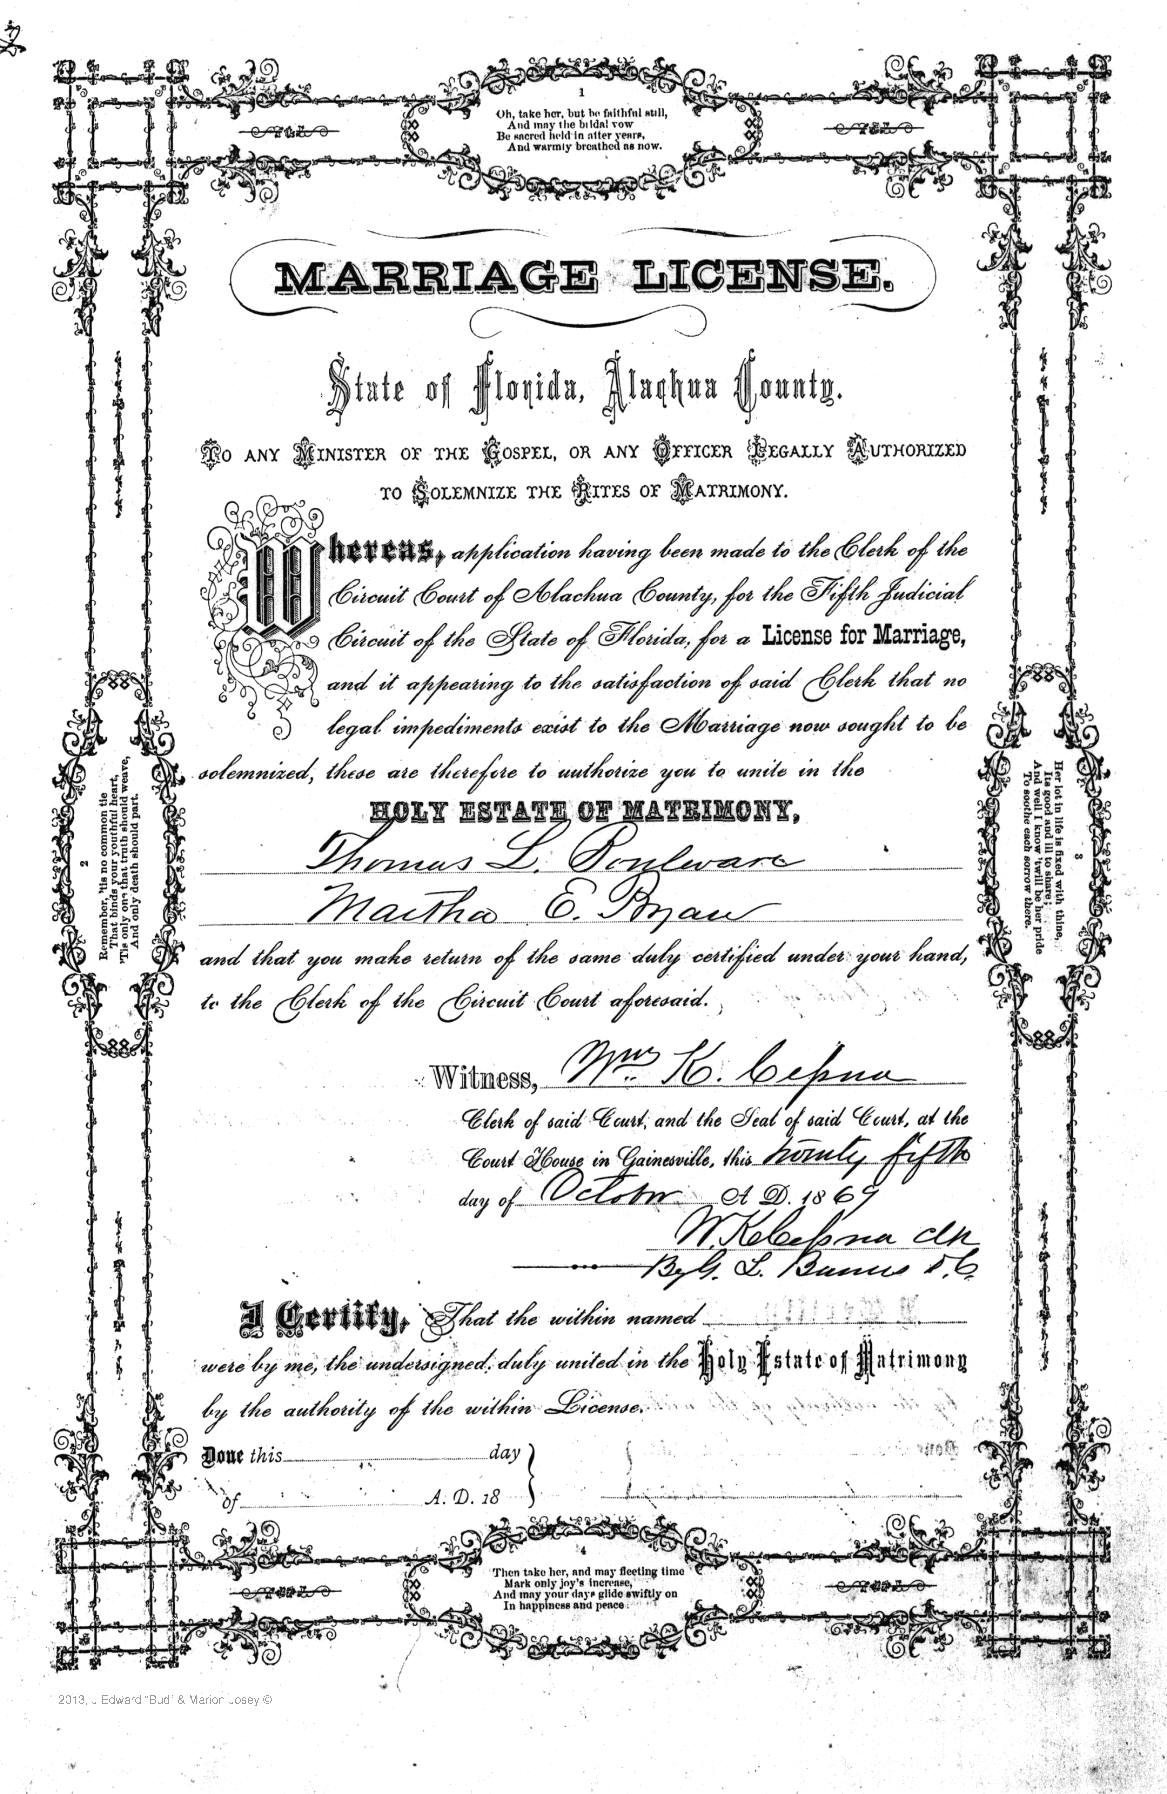 1
Oh, take her, but be faithful still,
And may the bridal vow
Be sacred held in after years,
And warmly breathed as now.
MARRIAGE LICENSE.
State of Florida, Alachua County.
TO ANY MINISTER OF THE GOSPEL, OR ANY OFFICER LEGALLY AUTHORIZED
TO SOLEMNIZE THE RITES OF MATRIMONY.
Whereas, application having been made to the Clerk of the
Circuit Court of Alachua County, for the Fifth Judicial
Circuit of the State of Florida, for a License for Marriage,
and it appearing to the satisfaction of said Clerk that no
legal impediments exist to the Marriage now sought to be
solemnized, these are therefore to authorize you to unite in the
HOLY ESTATE OF MATRIMONY,
Thomas L. Boulware
Martha E. Bryan
and that you make return of the same duly certified under your hand,
to the Clerk of the Circuit Court aforesaid.
2
Remember, 'tis no common tie
That binds your youthful heart,
'Tis only one that truth should weave,
And only death should part.
3
Her lot in life is fixed with thine,
Its good and ill to share;
And well I know 'twill be her pride
To soothe each sorrow there.
Witness, Wm K. Cessna
Clerk of said Court, and the Seal of said Court, at the
Court House in Gainesville, this twenty fifth
day of October A. D. 1869
W. K. Cessna Clk
By L. D. C.
I Certify, That the within named
were by me, the undersigned, duly united in the Holy Estate of Matrimony
by the authority of the within License.
Done this day
of A. D. 18
4
Then take her, and may fleeting time
Mark only joy's increase,
And may your days glide swiftly on
In happiness and peace.
2013, J Edward "Bud" & Marion Losey ©